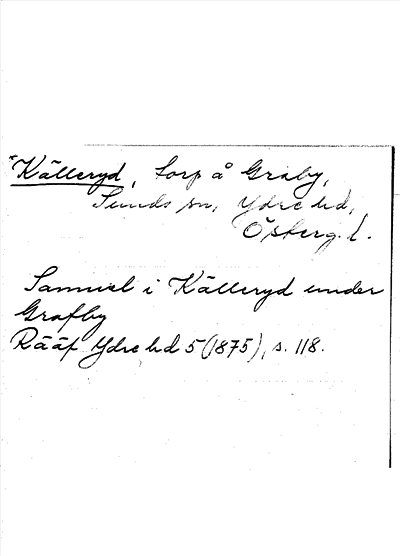 *Källeryd, torp å Graby,
Sunds sn, Ydre hd,
Österg. l.
Samuel i Källeryd under
Grafby
Rääf Ydre hd 5 (1875), s. 118.